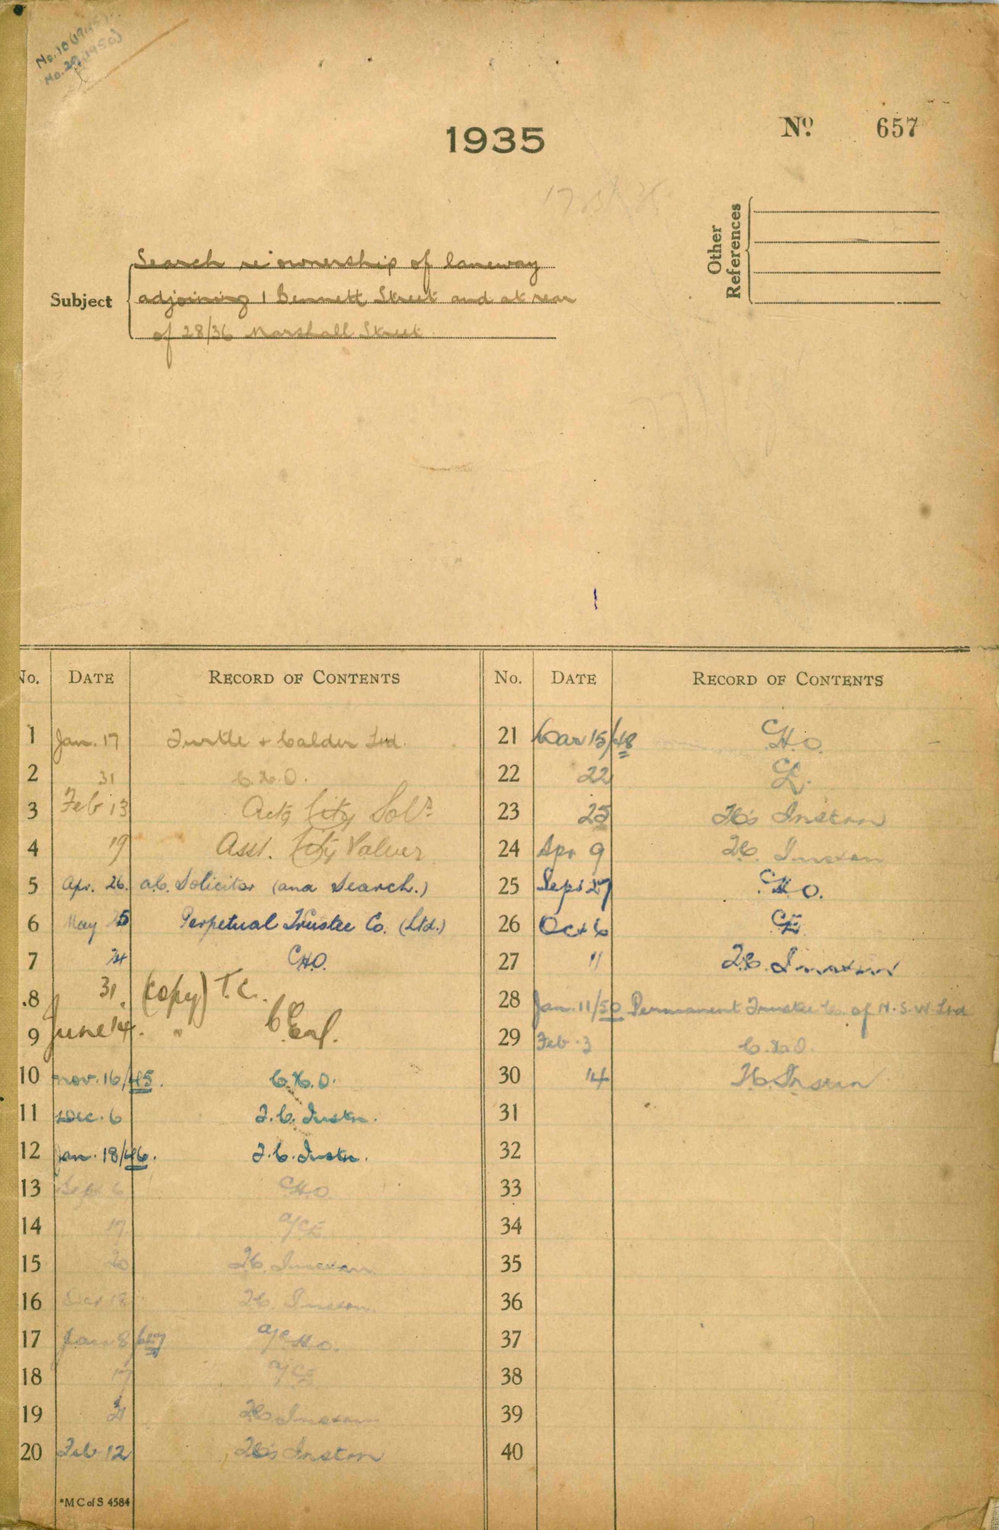 No. 10 (1945)
No. 29 (1950)
1935
No. 657
Other References
Subject
Search re ownership of laneway
adjoining 1 Bennett Street and at rear
of 28/36 Marshall Street
No. DATE RECORD OF CONTENTS No. DATE RECORD OF CONTENTS
1 Jan. 17 Turtle + Calder Ltd.
2 31 C.H.O.
3 Feb 13 Actg City Solr
4 19 Asst. City Valuer
5 Apr. 26. a.C. Solicitor (and Search.)
6 May Perpetual Trustee Co. (Ltd.)
7 24 CHO.
8 31. (copy) T.C.
9 June 14. "
10 Nov. 16/45. C.H.O.
11 Dec. 6 T.C. Instn.
12 Jan. 18/46. T.C. Instn.
13 Sept 6 CHO
14 17 a/CE
15 20 T.C.
16 18 T.C.
17 Jan 8/47 a/CHO.
18 17 a/CE
19 21 TC
20 Feb 12 TC's Instn
21 Mar 15/48 CHO.
22 22 CE.
23 25 TC's Instn
24 Apr 9 TC.
25 Sept 27 CHO.
26 Oct 6 CE
27 11 T.C.
28 Jan. 11/50 Permanent Trustee Co. of N.S.W Ltd
29 Feb. 3 C.H.O.
30 14 TC. Instn
31
32
33
34
35
36
37
38
39
40
*M C of S 4584